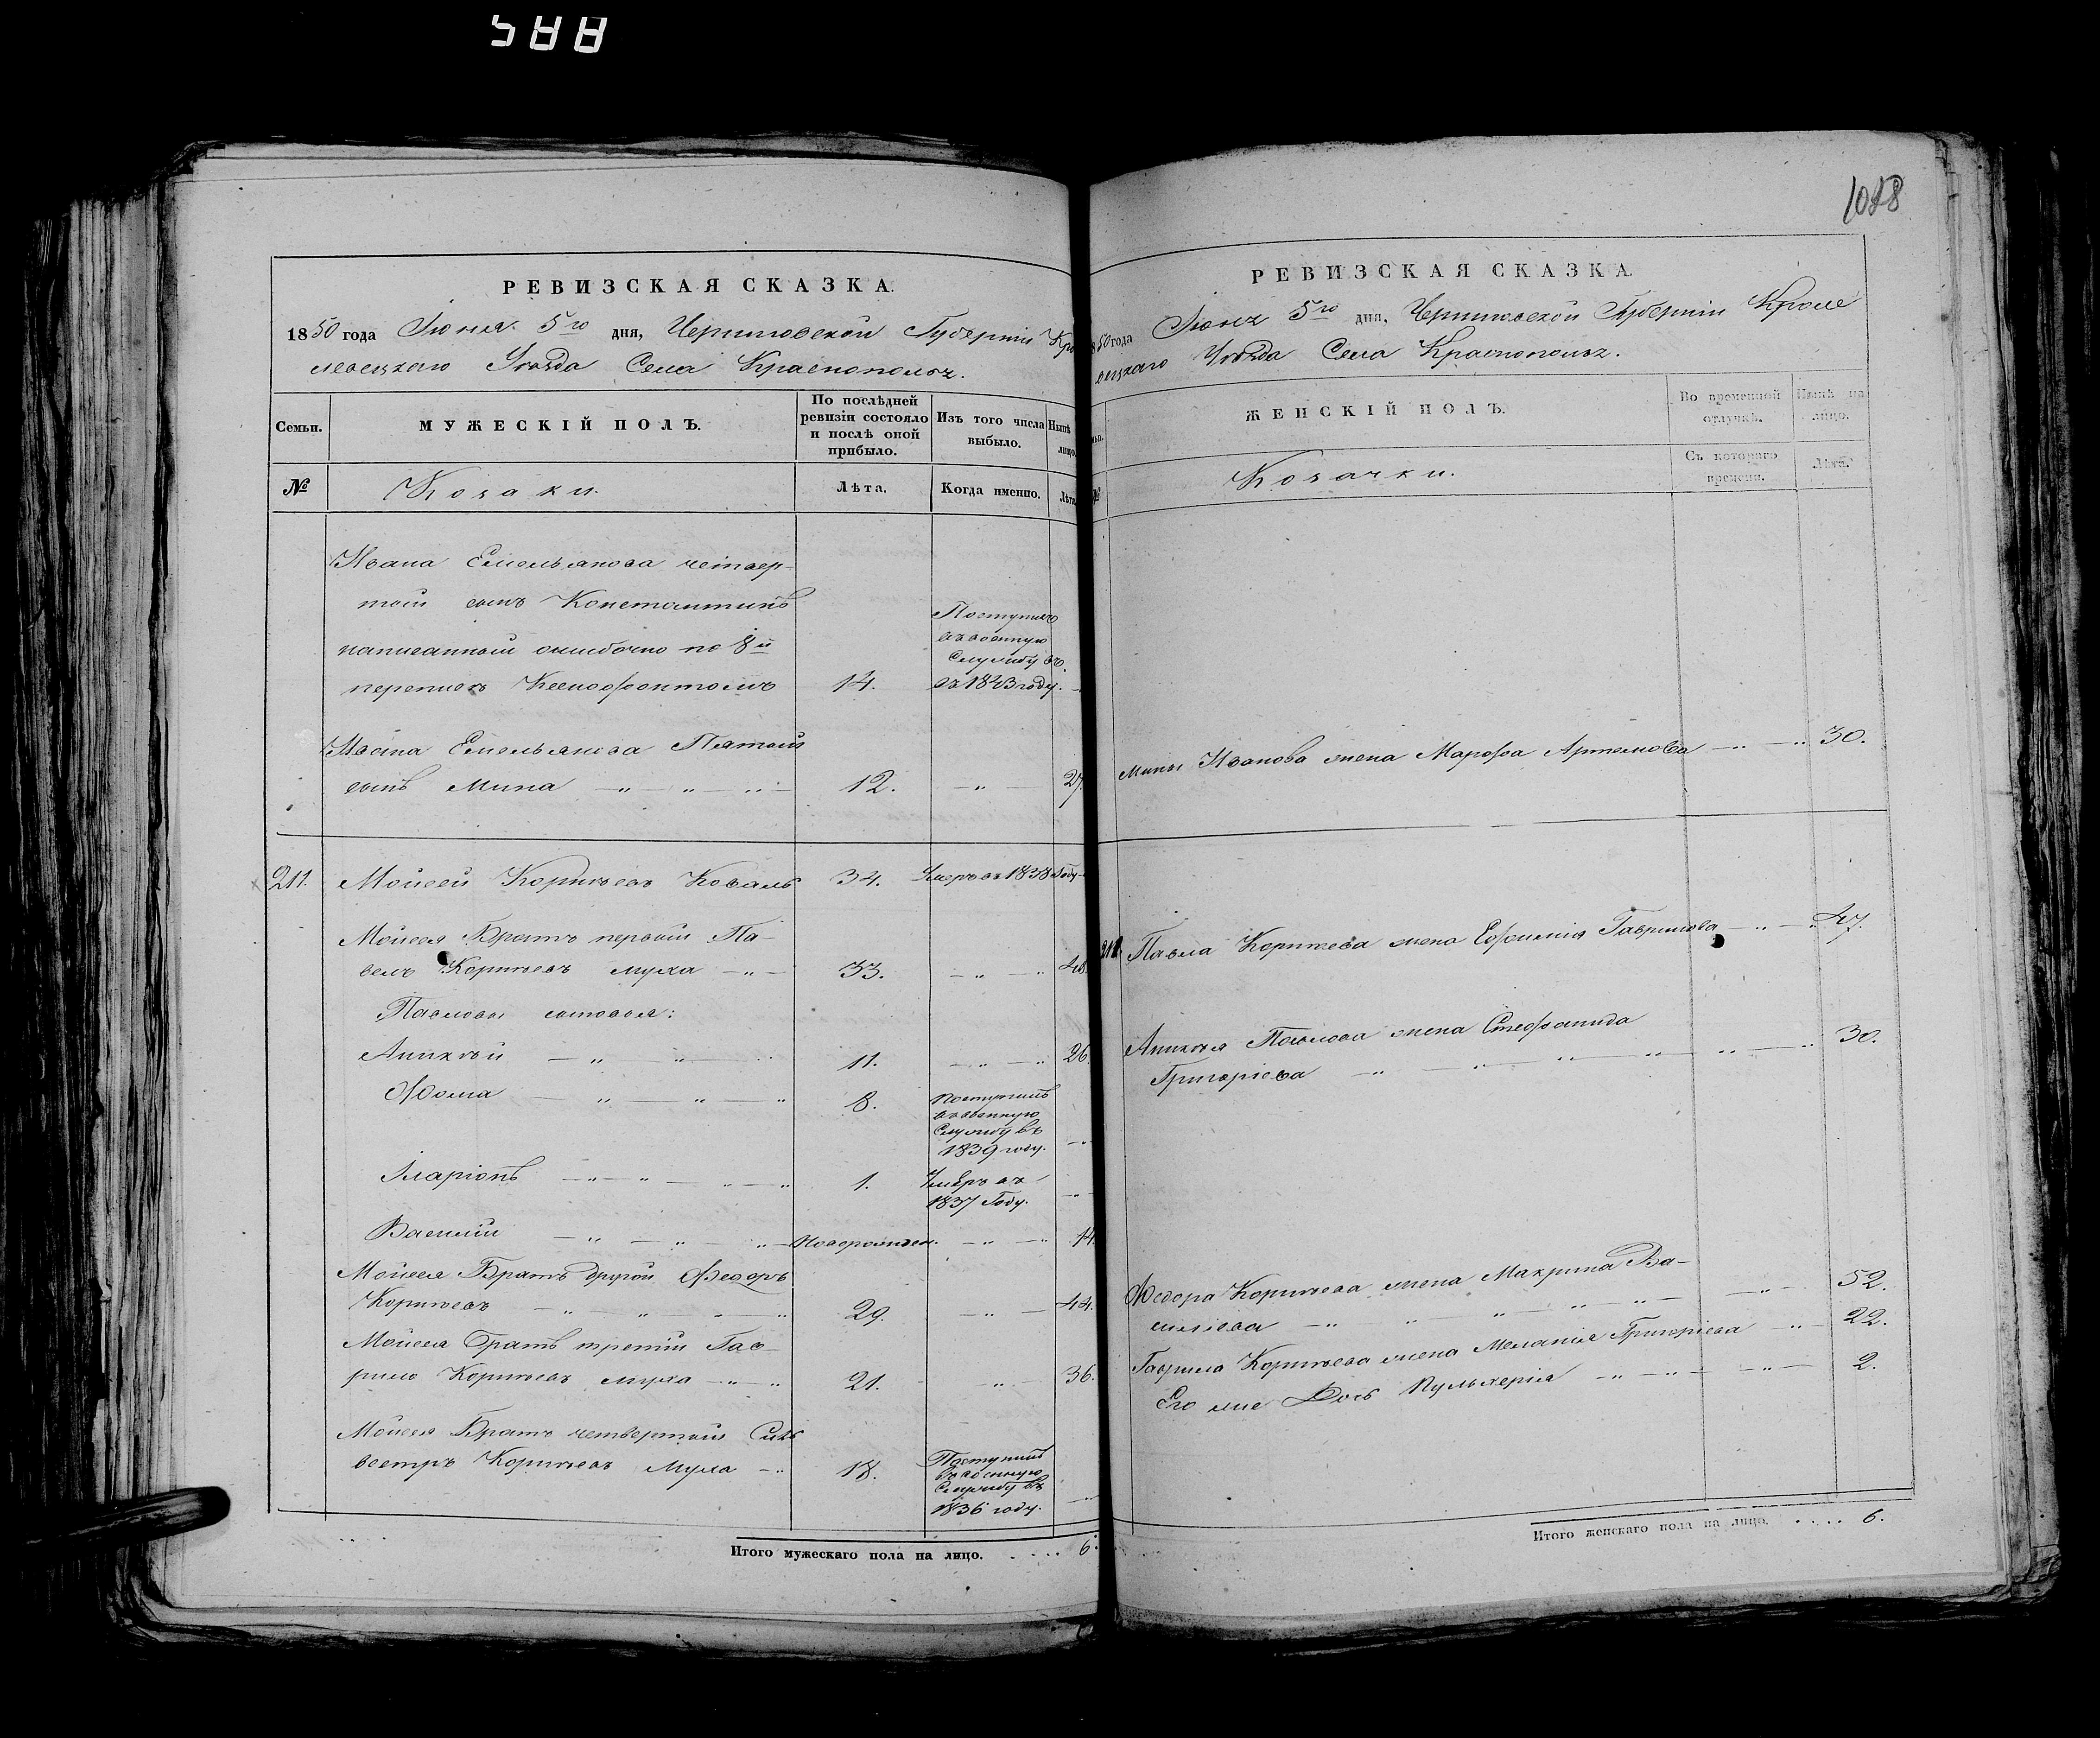 588
1088
РЕВИЗСКАЯ СКАЗКА.
1850 года Июня 5го дня, Черниговской Губерніи Кро
левецкаго Уѣзда Села Краснополья.
Семьи.
МУЖЕСКІЙ ПОЛЪ.
По послѣдней ревизіи состояло и послѣ оной прибыло.
Изъ того числа выбыло.
Нынѣ лицо.
№
Козаки.
Лѣта.
Когда именно.
Лѣта
Ивана Емельянова четвер-
тый сынъ Константинъ
написанный ошибочно по 8й
переписи Ксенофонтомъ 14. Поступилъ въ военную Службу въ 1843 году.
Ивана Емельянова Пятый
сынъ Мина 12. 27.
211. Мойсей Корнѣевъ Коваль 34. Умеръ въ 1838 Году
Мойсея Братъ первый Па-
велъ Корнѣевъ муха 33. 48.
Павловы сыновья:
Аникѣй 11. 26.
Фома 8. Поступилъ въ военную Службу въ 1839 году.
Иларіонъ 1. Умеръ въ 1837 Году.
Василій Новорожден. 14.
Мойсея Братъ другой Федоръ
Корнѣевъ 29. 44.
Мойсея Братъ третій Гав-
рило Корнѣевъ муха 21. 36.
Мойсея Братъ четвертый Силь
вестръ Корнѣевъ Муха 18. Поступилъ въ военную Службу въ 1836 году.
Итого мужескаго пола на лицо. 6.
РЕВИЗСКАЯ СКАЗКА.
50 года Июня 5го дня, Черниговской Губерніи Кроле
вецкаго Уѣзда Села Краснополья.
ЖЕНСКІЙ ПОЛЪ.
Во временной отлучкѣ.
Нынѣ на лицо.
№
Козачки.
Съ котораго времени.
Лѣта.
Мины Иванова жена Марфа Артемова 30.
211. Павла Корнѣева жена Ефимія Гаврилова 47.
Аникѣя Павлова жена Стефанида
Григоріева 30.
Федора Корнѣева жена Макрина Ва-
силіева 52.
Гаврила Корнѣева жена Меланія Григоріева 22.
Его же Дочь Пульхерія 2.
Итого женскаго пола на лицо. 6.